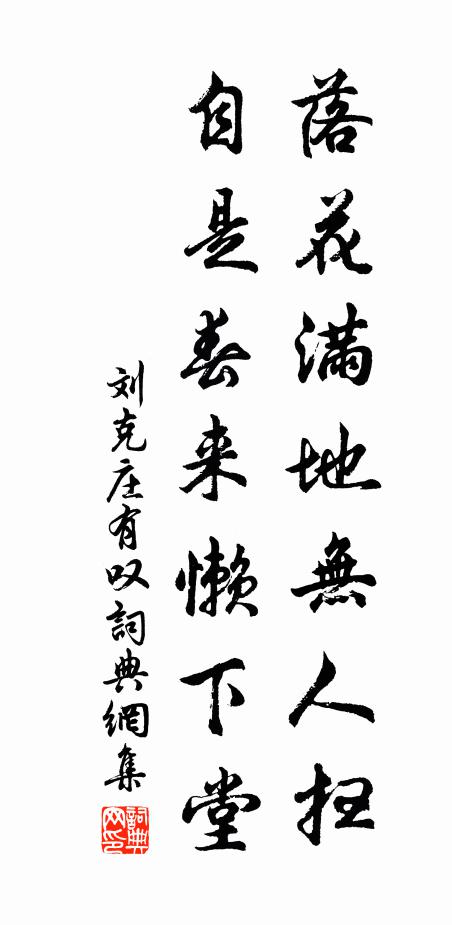 落花满地無人抂
自是春来懒下堂
刘克庄有叹詞典網集
詞典
网印